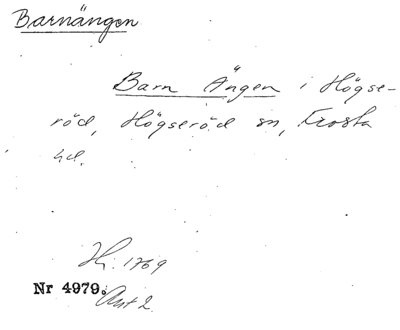 Barnängen
Barn Ängen i Högse-
röd, Högseröd sn, Frosta
hd.
H. 1769
Nr 4979.
Akt 2